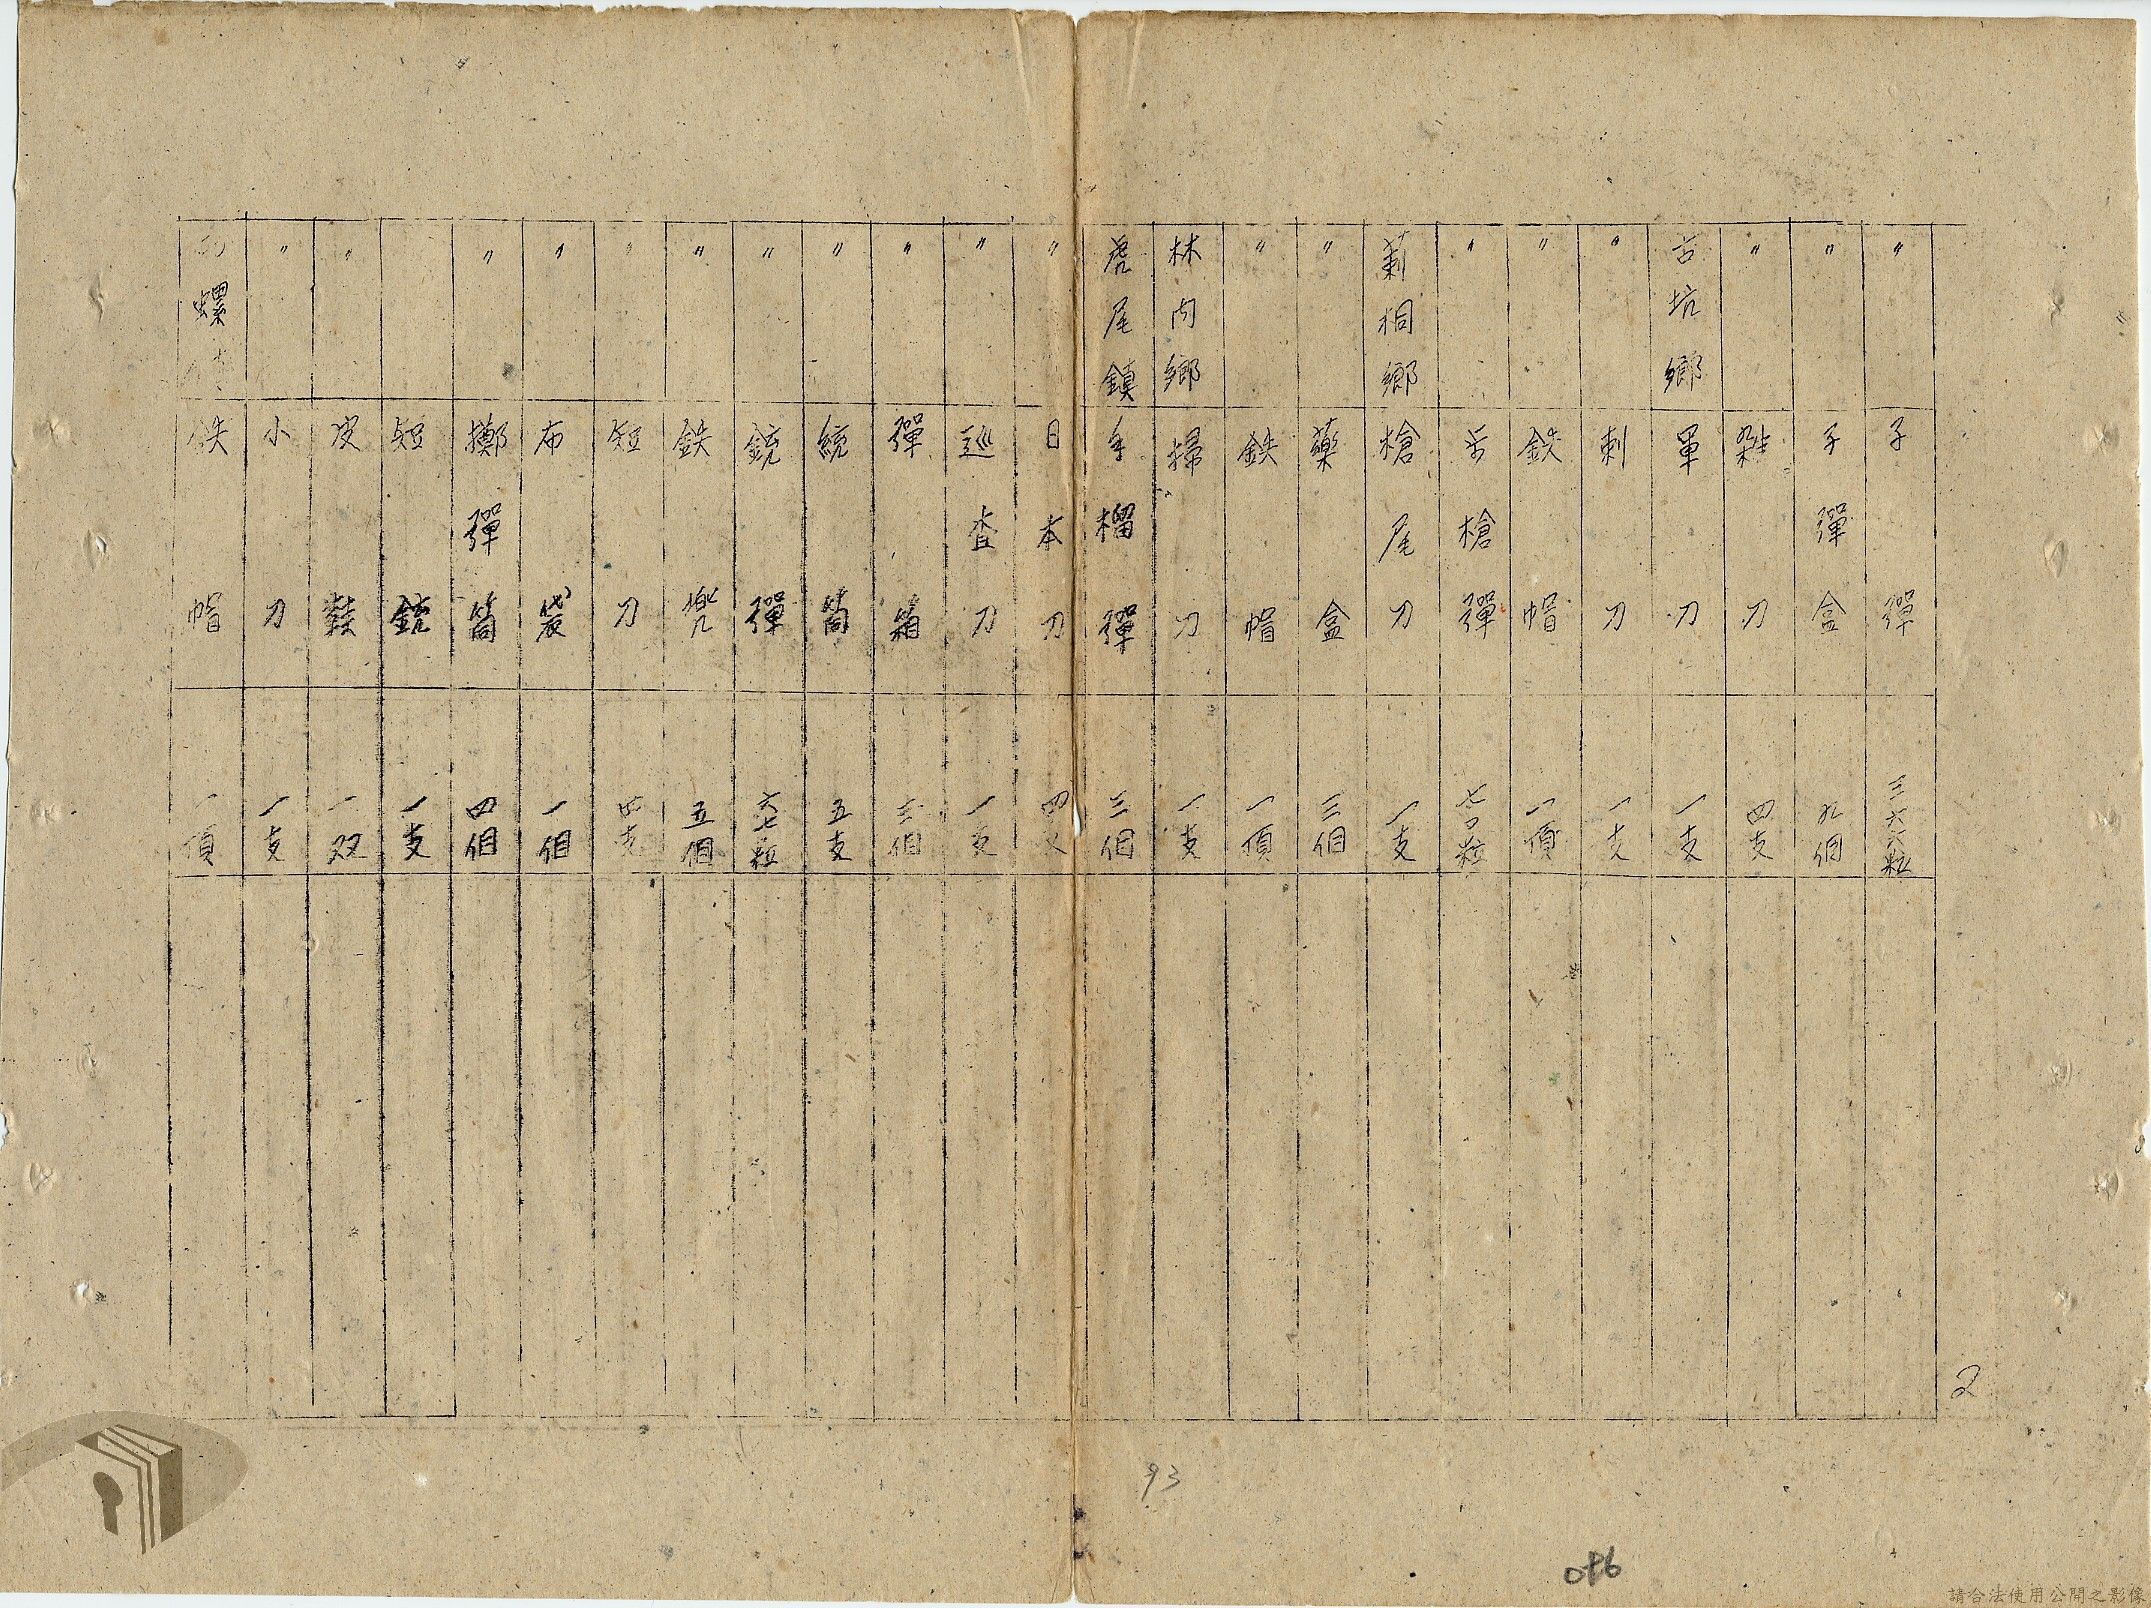 〃 子彈 三六六粒
〃 子彈盒 九個
〃 雜刀 四支
古坑鄉 軍刀 一支
〃 刺刀 一支
〃 鉄帽 一頂
〃 步槍彈 七〇粒
莿桐鄉 槍尾刀 一支
〃 藥盒 三個
〃 鉄帽 一頂
林內鄉 掃刀 一支
虎尾鎮 手榴彈 三個
〃 日本刀 四支
〃 巡查刀 一支
〃 彈箱 三個
〃 銃筒 五支
〃 銃彈 六七粒
〃 鉄兜 五個
〃 短刀 四支
〃 布袋 一個
〃 擲彈筒 四個
短銃 一支
〃 皮鞋 一双
〃 小刀 一支
西螺鎮 鉄帽 一頂
2
93
086
請合法使用公開之影像